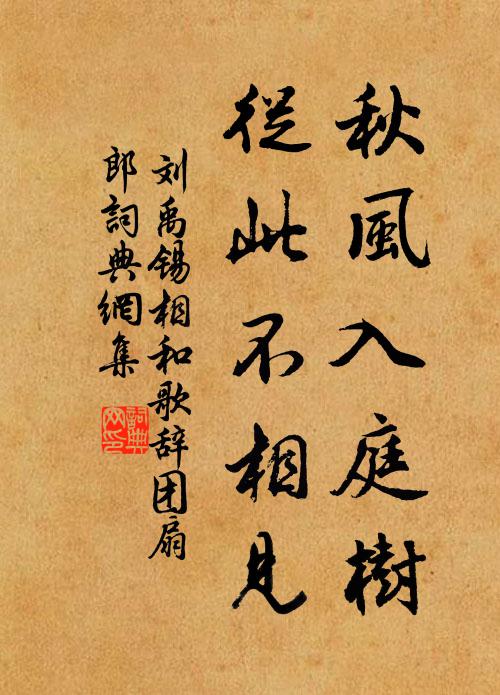 秋風入庭樹
從此不相見
刘禹锡相和歌辞团扇
郎詞典網集
詞典网印